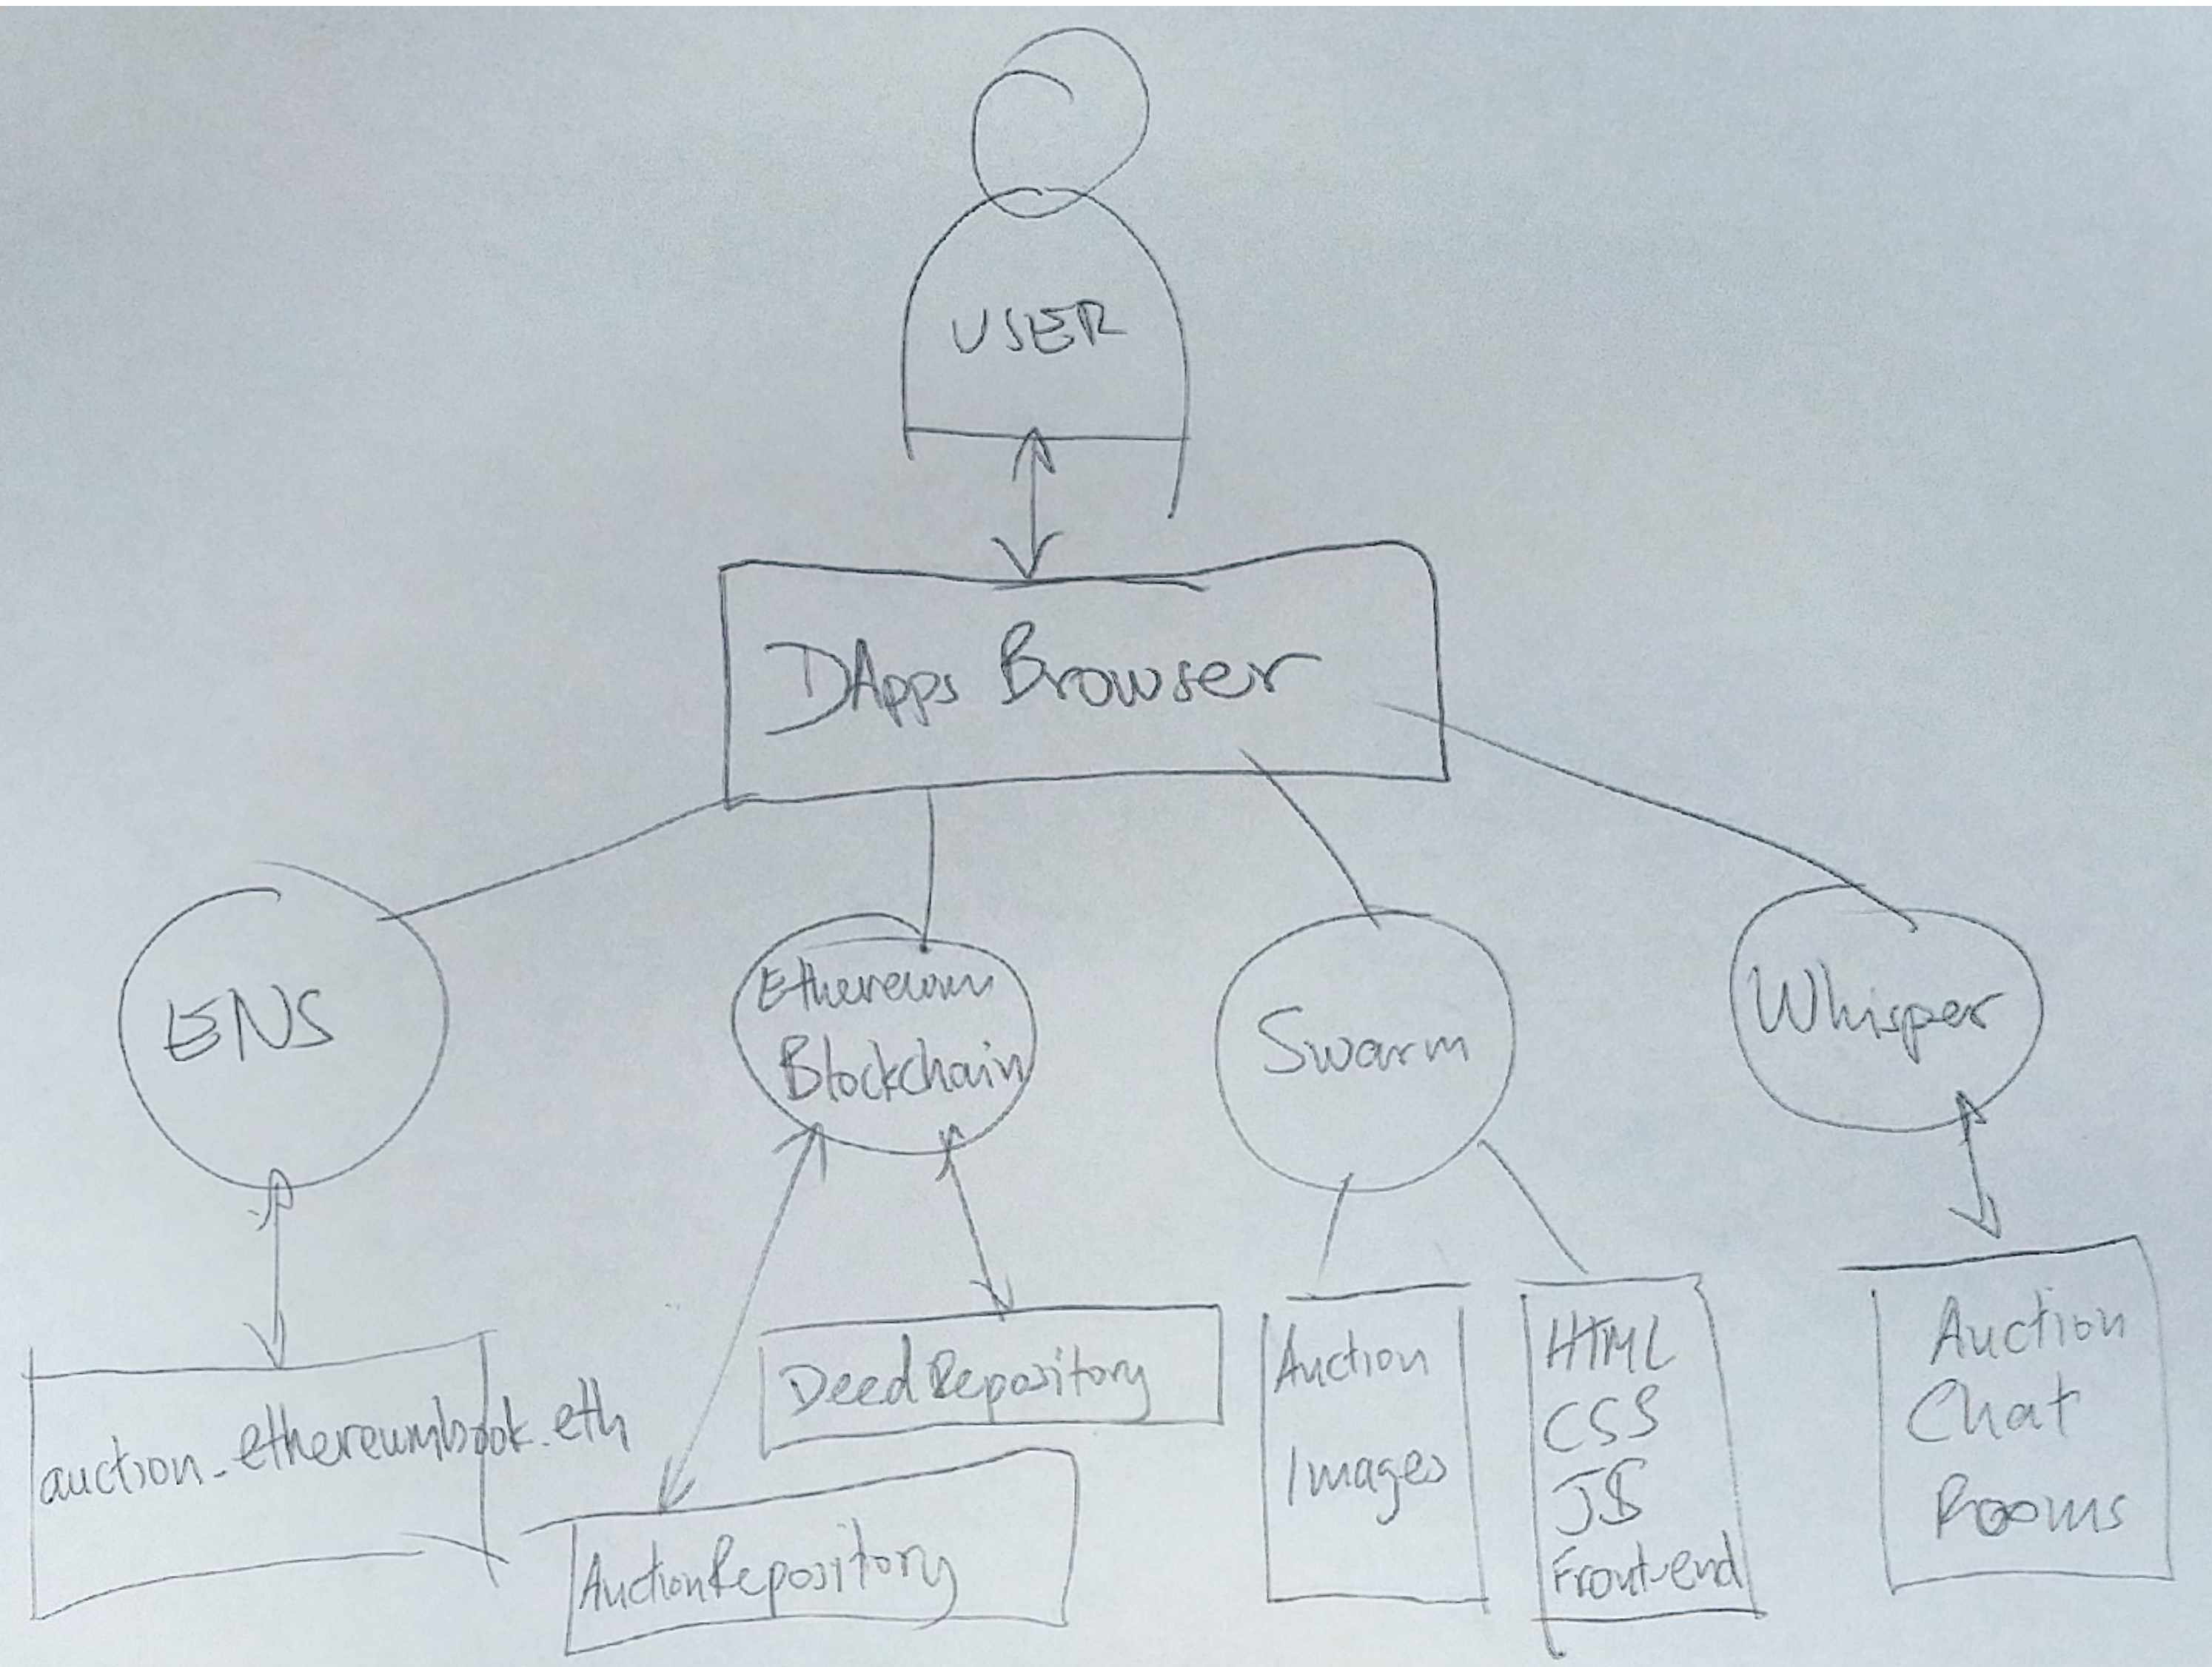 USER
DApps Browser
ENS
Ethereum
Blockchain
Swarm
Whisper
auction.ethereumbook.eth
DeedRepository
AuctionRepository
Auction
Images
HTML
CSS
JS
Frontend
Auction
Chat
Rooms